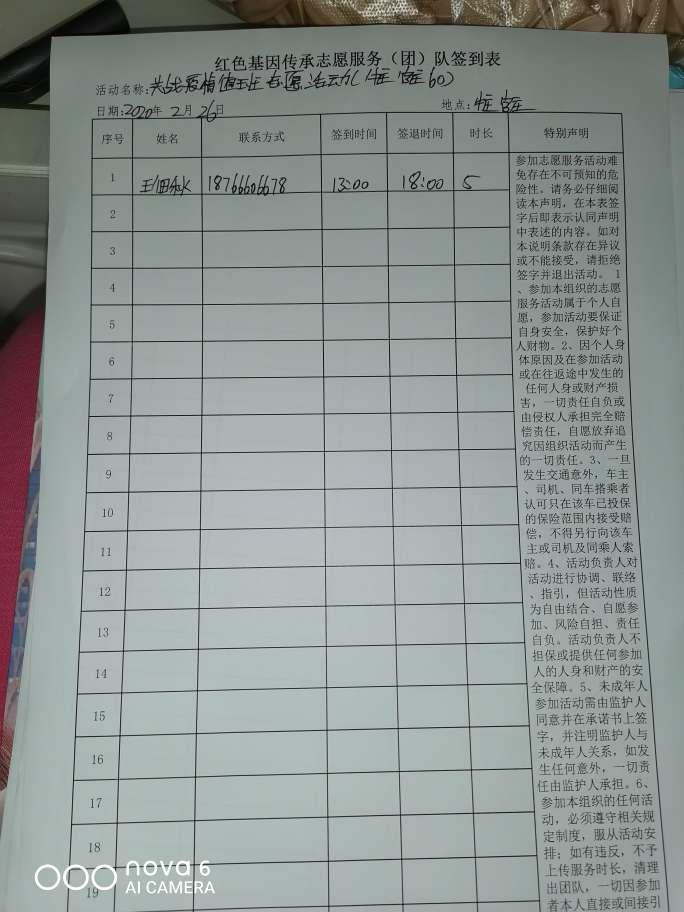 红色基因传承志愿服务（团）队签到表
活动名称:共战疫情值班志愿活动(
日期:2020年 2月 26日 地点:
序号 姓名 联系方式 签到时间 签退时间 时长 特别声明
1 18766606678 13:00 18:00 5
2
3
4
5
6
7
8
9
10
11
12
13
14
15
16
17
18
19
参加志愿服务活动难
免存在不可预知的危
险性。请务必仔细阅
读本声明，在本表签
字后即表示认同声明
中表述的内容。如对
本说明条款存在异议
或不能接受，请拒绝
签字并退出活动。 1
、参加本组织的志愿
服务活动属于个人自
愿，参加活动要保证
自身安全，保护好个
人财物。2、因个人身
体原因及在参加活动
或在往返途中发生的
任何人身或财产损
害，一切责任自负或
由侵权人承担完全赔
偿责任，自愿放弃追
究因组织活动而产生
的一切责任。3、一旦
发生交通意外，车主
、司机、同车搭乘者
认可只在该车已投保
的保险范围内接受赔
偿，不得另行向该车
主或司机及同乘人索
赔。4、活动负责人对
活动进行协调、联络
、指引，但活动性质
为自由结合、自愿参
加、风险自担、责任
自负。活动负责人不
担保或提供任何参加
人的人身和财产的安
全保障。5、未成年人
参加活动需由监护人
同意并在承诺书上签
字，并注明监护人与
未成年人关系，如发
生任何意外，一切责
任由监护人承担。6、
参加本组织的任何活
动，必须遵守相关规
定制度，服从活动安
排；如有违反，不予
上传服务时长，清理
出团队，一切因参加
者本人直接或间接引
nova 6
AI CAMERA